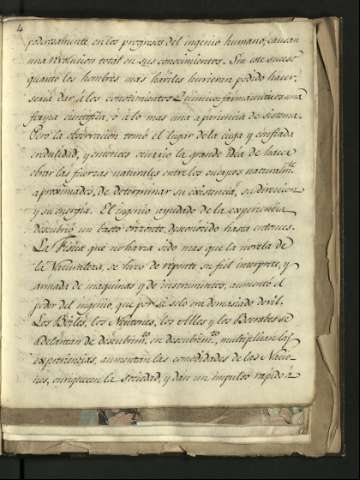 4
poderosamente en los progresos del ingenio humano, causan
una revolucion total en sus conocimientos. Sin este suceso
quanto los hombres mas hábiles hurieran podido hacer,
sería dar á los conocimientos Quimico-farmaceuticos una
forma cientifica, ó á lo mas una apariencia de sistema.
Pero la observacion tomó el lugar de la ciega y confiada
credulidad, y entonces ocurrió la grande idea de hacer
obrar las fuerzas naturales entre los cuerpos naturalmte
aproximados, de determinar su existencia, su direccion
y su energía. El ingenio ayudado de la experiencia
descubrió un basto orizonte, desconocido hasta entonces.
La Física que no havia sido mas que la novela de
la Naturaleza, se hizo de repente su fiel interprete, y
armada de maquinas y de instrumentos, aumentó el
poder del ingenio, que por sí solo era demasiado devil.
Los Boiles, los Neutones, los y los
adelantan de descubrimto en descubrimto, multiplican las
experiencias, aumentan las comodidades de las Nacio-
nes, enriquecen la Sociedad, y dan un impulso rapido á